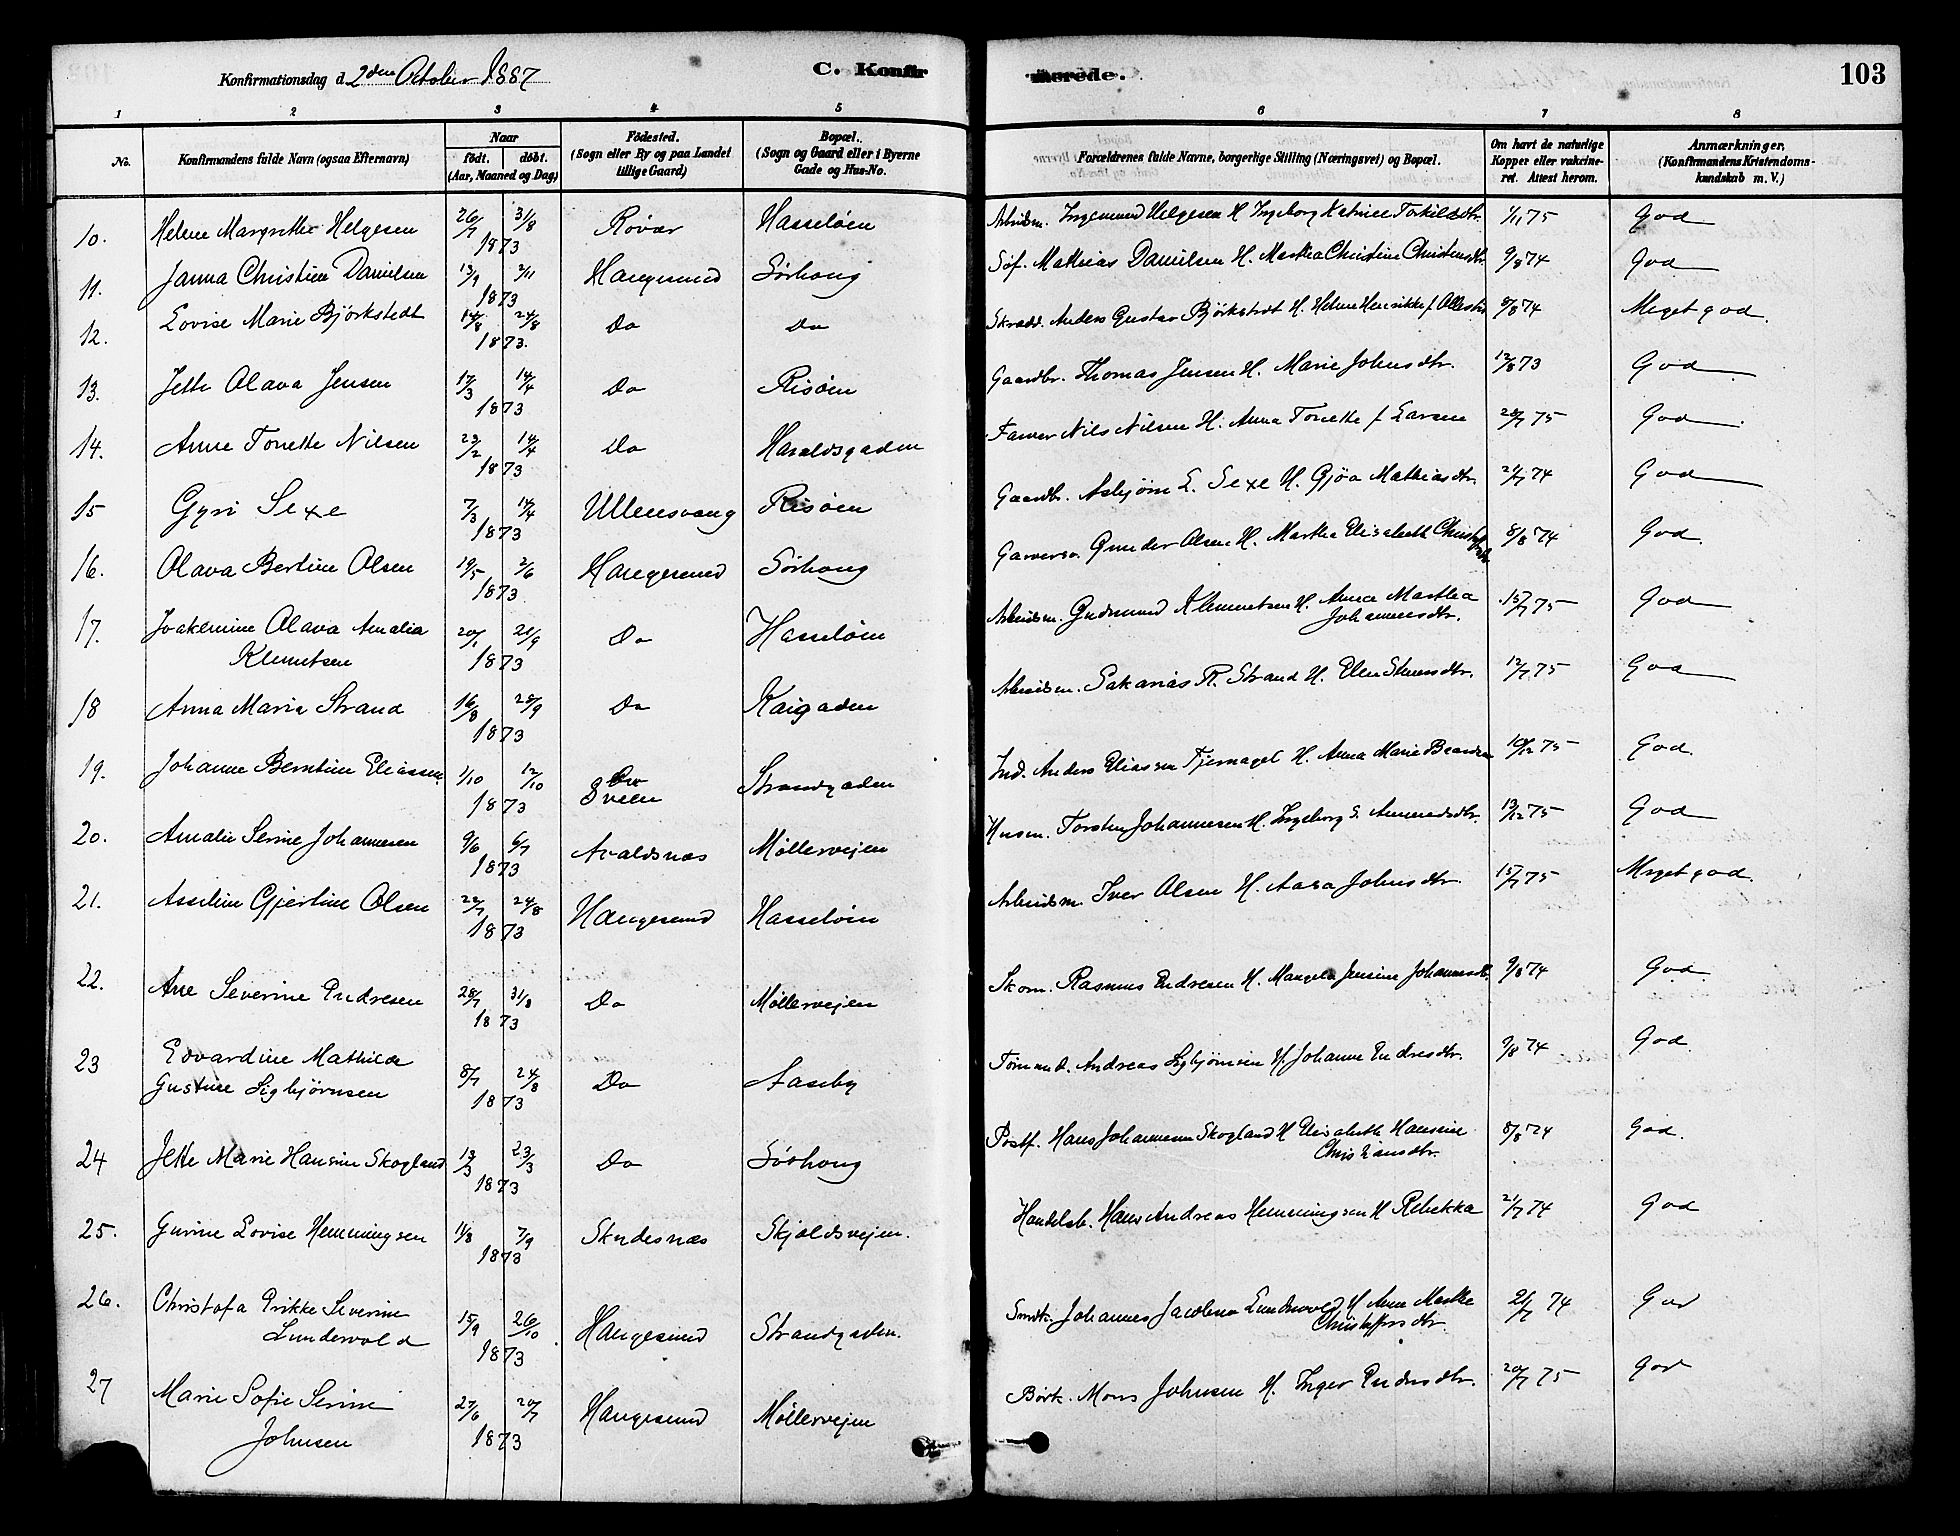 Konfirmationsdag d. 2den October 1887 C. Konfirmerede. 103
1 2 3 4 5 6 7 8
No. Konfirmandens fulde Navn (ogsaa Efternavn) Naar födt. döbt. (Aar, Maaned og Dag) Födested. (Sogn eller By og paa Landet tillige Gaard) Bopæl. (Sogn og Gaard eller i Byerne Gade og Hus-No. Forældrenes fulde Navne, borgerlige Stilling (Næringsvei) og Bopæl. Om havt de naturlige Kopper eller vakcineret. Attest herom. Anmærkninger, (Konfirmandens Kristendomskundskab m. V.)
10. Helene Margrethe Helgesen 26/7 31/8 1873 Rövær Hasselöen Arbeidsm. Ingemund Helgesen H. Ingeborg Katrine Torkildsdtr. 1/11 75 God
11. Janna Christine Danielsen 13/9 2/11 1873 Haugesund Sörhaug Söf. Mathias Danielsen H. Martha Christine Christensdtr. 9/8 74 God
12. Lovise Marie Björkstedt 14/8 24/8 1873. Do Do Skrædd. Anders Gustav Björkstedt H. Helene Henrikke f. 8/8 74 Meget god.
13. Jette Olava Jensen 17/3 14/4 1873 Do Risöen Gaardbr. Thomas Jensen H. Marie Johnsdtr. 12/8 73 God
14. Anne Tonette Nilsen 23/2 14/4 1873 Do Haraldsgaden Farver Nils Nilsen H. Anna Tonette f Larsen 28/7 75 God
15 Gyri Sexe 7/3 14/4 1873 Ullensvang Risöen Gaardbr. Asbjörn L. Sexe H. Gjöa Mathiasdtr. 21/7 74 God
16. Olava Bertine Olsen 19/5 2/6 1873 Haugesund Sörhaug Garversv. Gunder Olsen H. Martha Elisabeth 8/8 74 God.
17. Joakimine Olava Amalia Klemetsen 20/1 21/9 1873 Do Hasselöen Arbeidsm. Gudmund Klemmetsen H. Anna Martha Johannesdtr. 15/7 75 God
18 Anna Maria Strand 16/8 28/9 1873 Do Kaigaden Arbeidsm. Sakarias R. Strand H. Elen 12/7 75 God
19. Johanne Berntine Eliassen 1/10 12/10 1873 Sveen Strandgaden Ind. Anders Eliassen Tjernagel H. Anna Marie 10/12 75 God.
20. Amalie Serine Johannesen 9/6 6/7 1873 Avaldsnæs Möllervejen Husm. Torsten Johannesen H. Ingeborg S. 13/12 75 God
21. Asseline Gjertine Olsen 22/7 24/8 1873 Haugesund Hasselöen Arbeidsm. Iver Olsen H. Aasa Johnsdtr. 15/7 75 Meget god.
22. Ane Severine Endresen 28/7 31/8 1873 Do Möllervejen Skom. Rasmus Endresen H. Mangela Jensine Johannesdtr. 9/8 74 God.
23 Edvardine Mathilde Gustine Sigbjörnsen 8/7 24/8 1873 Do Aaseby Tömmd. Andreas Sigbjörnsen H. Johanne Endresdtr. 9/8 74 God.
24 Jette Marie Hansine Skogland 13/3 23/3 1873 Do Sörhaug Postf. Hans Johannesen Skogland H Elisabeth Hansine Christiansdtr. 8/8 74 God.
25. Gurine Lovise Hemmingsen 11/8 7/9 1873 Skudesnæs Skjoldsvejen. Handelsb. Hans Andreas Hemmingsen H Rebekka 21/7 74 God
26. Christofa Erikke Severine Lundervold 15/9 26/10 1873 Haugesund Strandgaden. Snedk. Johannes Jacobsen Lundervold H Anne Marthe Christoffersdtr. 21/7 74 God
27 Marie Sofie Serine Johnsen 27/6 20/7 1873 Haugesund Möllervejen Bödk. Mons Johnsen H. Inger Endresdtr. 20/7 75 God